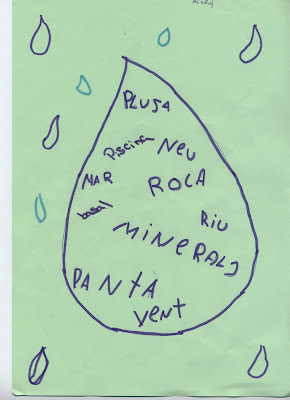 PLUJA
Piscina
NEU
MAR
ROCA
basal
RIU
MINERALS
PANTA
VENT